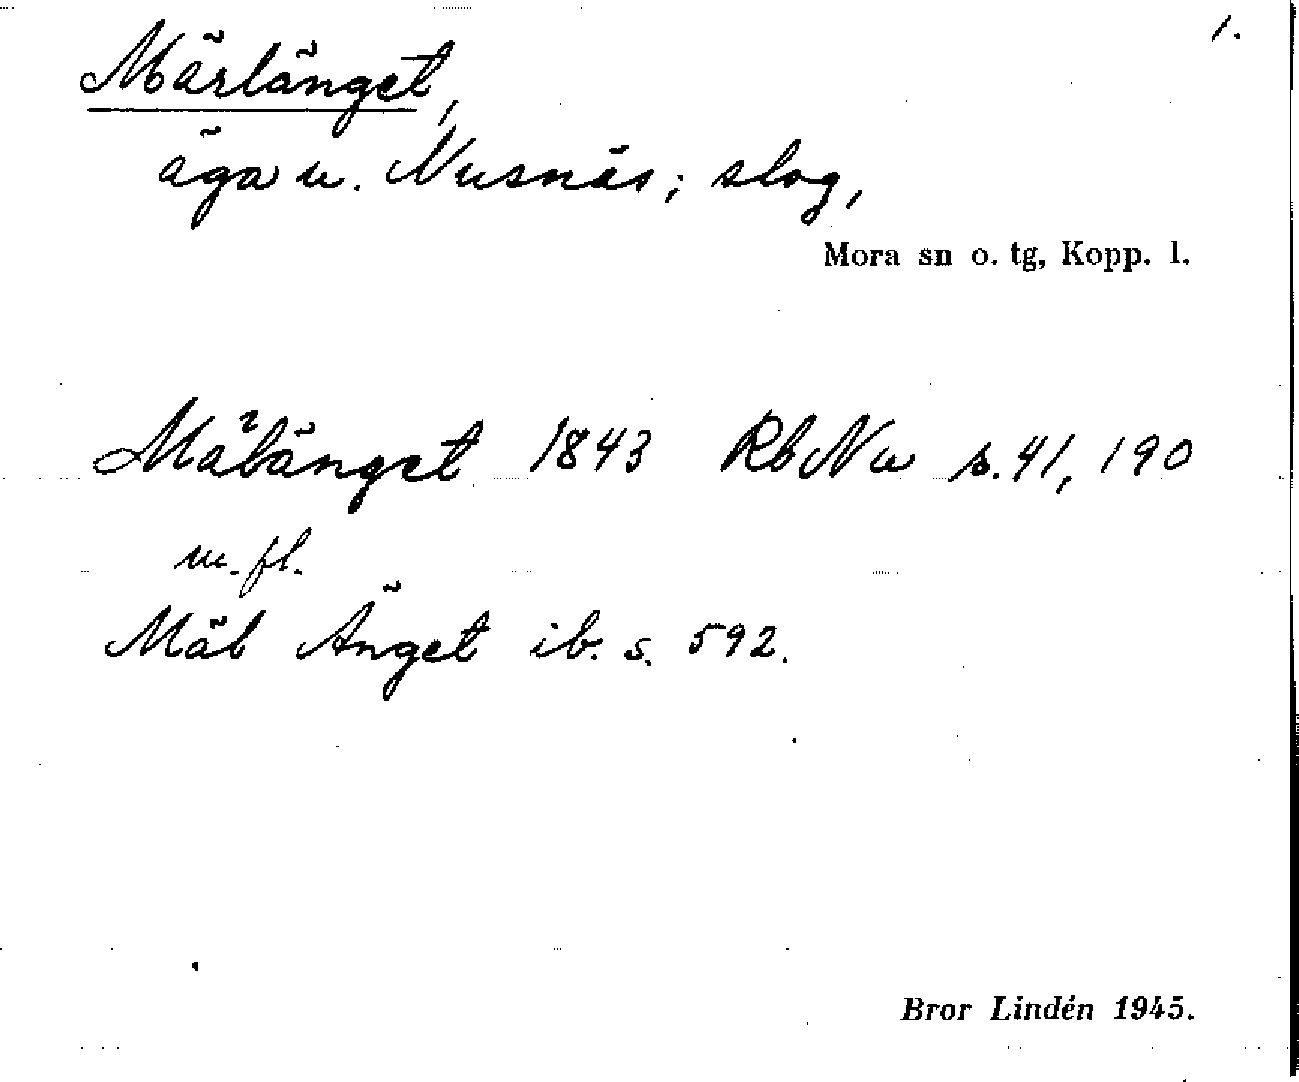 1.
Märlänget,
äga u. Nusnäs; slog,
Mora sn o. tg, Kopp. l.
Mäbänget 1843 Rb Nu s. 41, 190
m. fl.
Mäb Änget ib. s. 592.
Bror Lindén 1945.